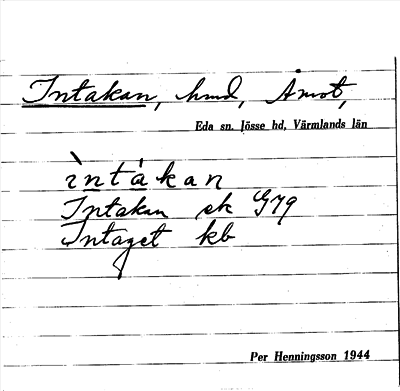 Intakan, hmd, Åmot,
Eda sn. Jösse hd, Värmlands län
ìntákan
Intakan sk G79
Intaget kb
Per Henningsson 1944